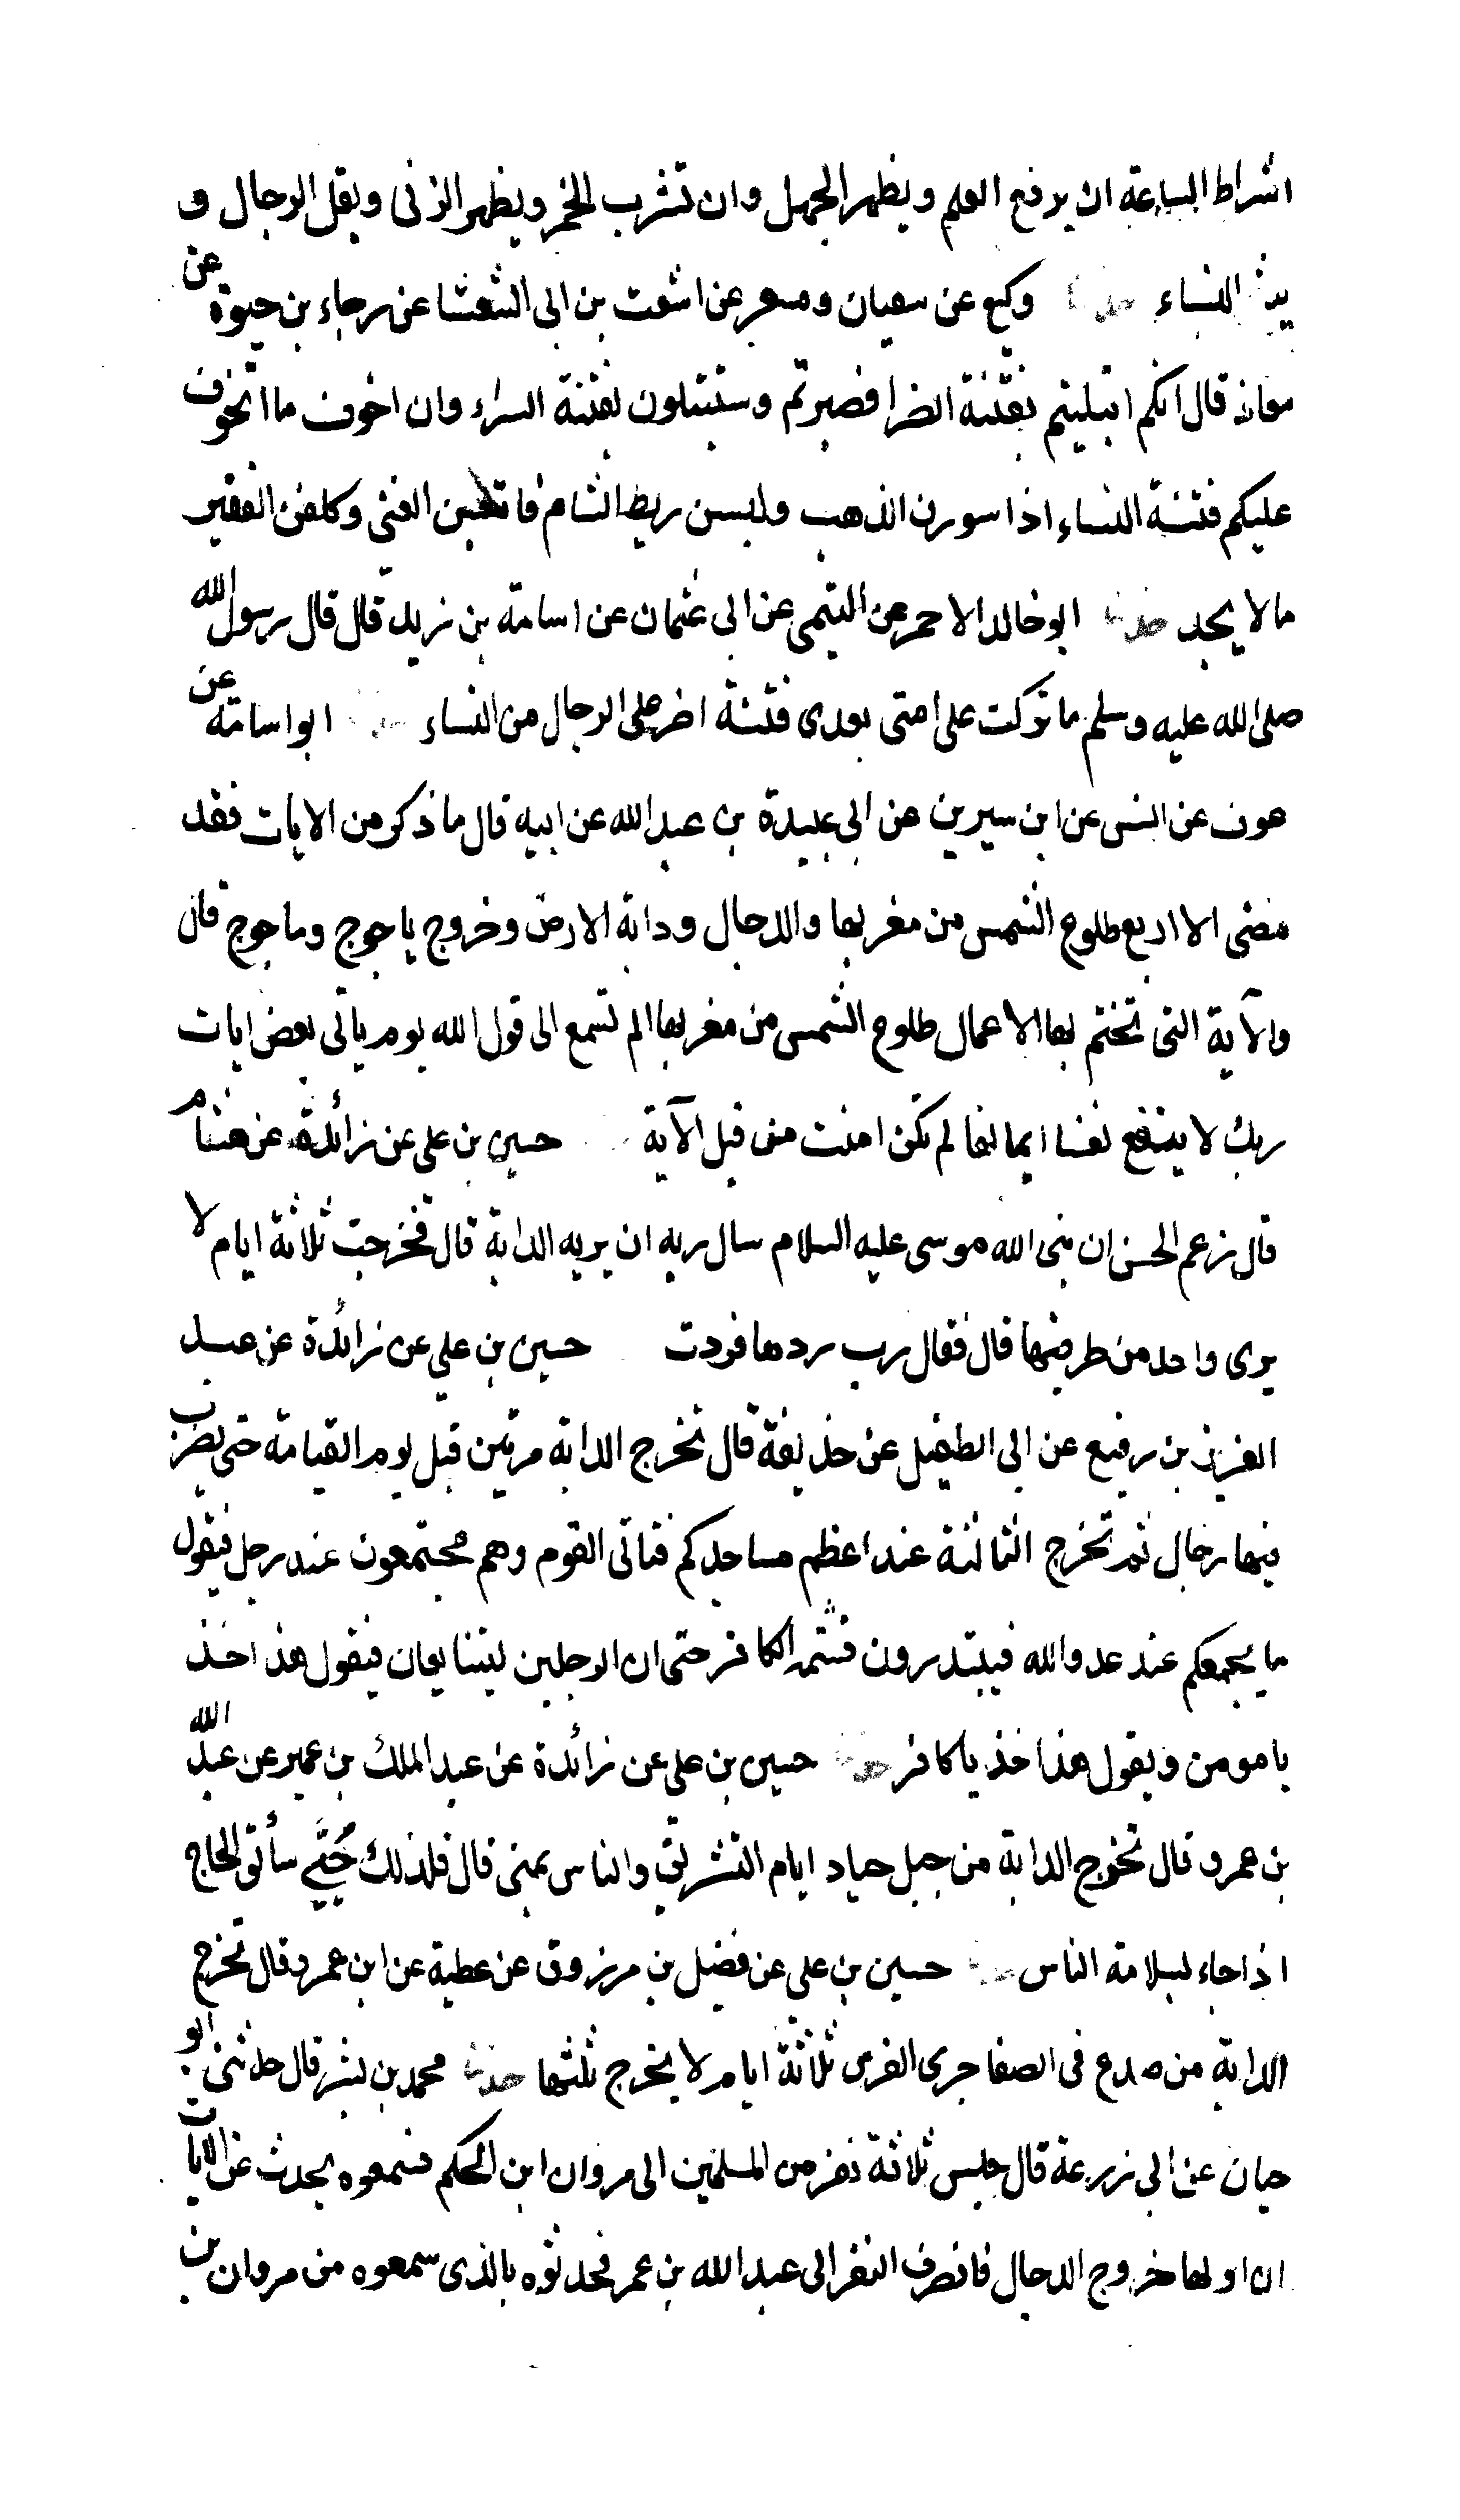 اشراط الساعة ان يرفع العلم ويظهر الجهل وان تشرب الخمر ويظهر الزنى ويقل الرجال و
النساء حدثنا وكيع عن سفيان ومسعر عن اشعث بن ابى الشعثا عن رجاء بن حيوة عن
معاذ قال انكم ابتليتم بفتنة الضرا فصبرتم وستبتلون بفتنة السراء وان اخوف ما اتخوف
عليكم فتنة النساء اذا سورن الذهب ولبسن ريط الشام فاتعبن الغنى وكلفن الفقير
ما لا يجد حدثنا ابو خالد الاحمر عن التيمى عن ابى عثمان عن اسامة بن زيد قال قال رسول الله
صلى الله عليه وسلم ما تركت على امتى بعدى فتنة اضر على الرجال من النساء ابو اسامة عن
عون عن انس عن ابن سيرين عن ابى عبيدة بن عبد الله عن ابيه قال ما ذكر من الايات فقد
مضى الا اربع طلوع الشمس من مغربها والدجال ودابة الارض وخروج ياجوج وماجوج قال
والآية التى تختم بها الاعمال طلوع الشمس من مغربها الم تسمع الى قول الله يوم ياتى بعض ايات
ربك لا ينفع نفسا ايمانها لم تكن امنت من قبل الآية حسين بن على عن زائدة عن هشام
قال زعم الحسن ان نبى الله موسى عليه السلام سال ربه ان يريه الدابة قال فخرجت ثلاثة ايام لا
يرى واحد من طرفيها قال فقال رب ردها فردت حسين بن علي عن زائدة عن عبد
العزيز بن رفيع عن ابى الطفيل عن حذيفة قال تخرج الدابة مرتين قبل يوم القيامة حتى يضرب
فيها رجال ثم تخرج الثالثة عند اعظم مساجدكم فتاتى القوم وهم مجتمعون عند رجل فيقول
ما يجمعكم عند عدو الله فيبتدرون فتسم الكافر حتى ان الرجلين ليتبايعان فيقول هذا خذ
يا مومن ويقول هذا خذ يا كافر حدثنا حسين بن على عن زائدة عن عبد الملك بن عمير عن عبد الله
بن عمرو قال تخرج الدابة من جبل جياد ايام التشريق والناس بمنى قال فلذلك حُيّي سائق الحاج
اذا جاء بسلامة الناس حدثنا حسين بن علي عن فضيل بن مرزوق عن عطية عن ابن عمرو قال تخرج
الدابة من صدع فى الصفا جرى الفرس ثلاثة ايام لا يخرج ثلثها حدثنا محمد بن بشر قال حدثنى ابو
حيان عن ابى زرعة قال جلس ثلاثة نفر من المسلمين الى مروان ابن الحكم فسمعوه يحدث عن الايات
ان اولها خروج الدجال فانصرف النفر الى عبد الله بن عمر فحدثوه بالذى سمعوه من مروان بن